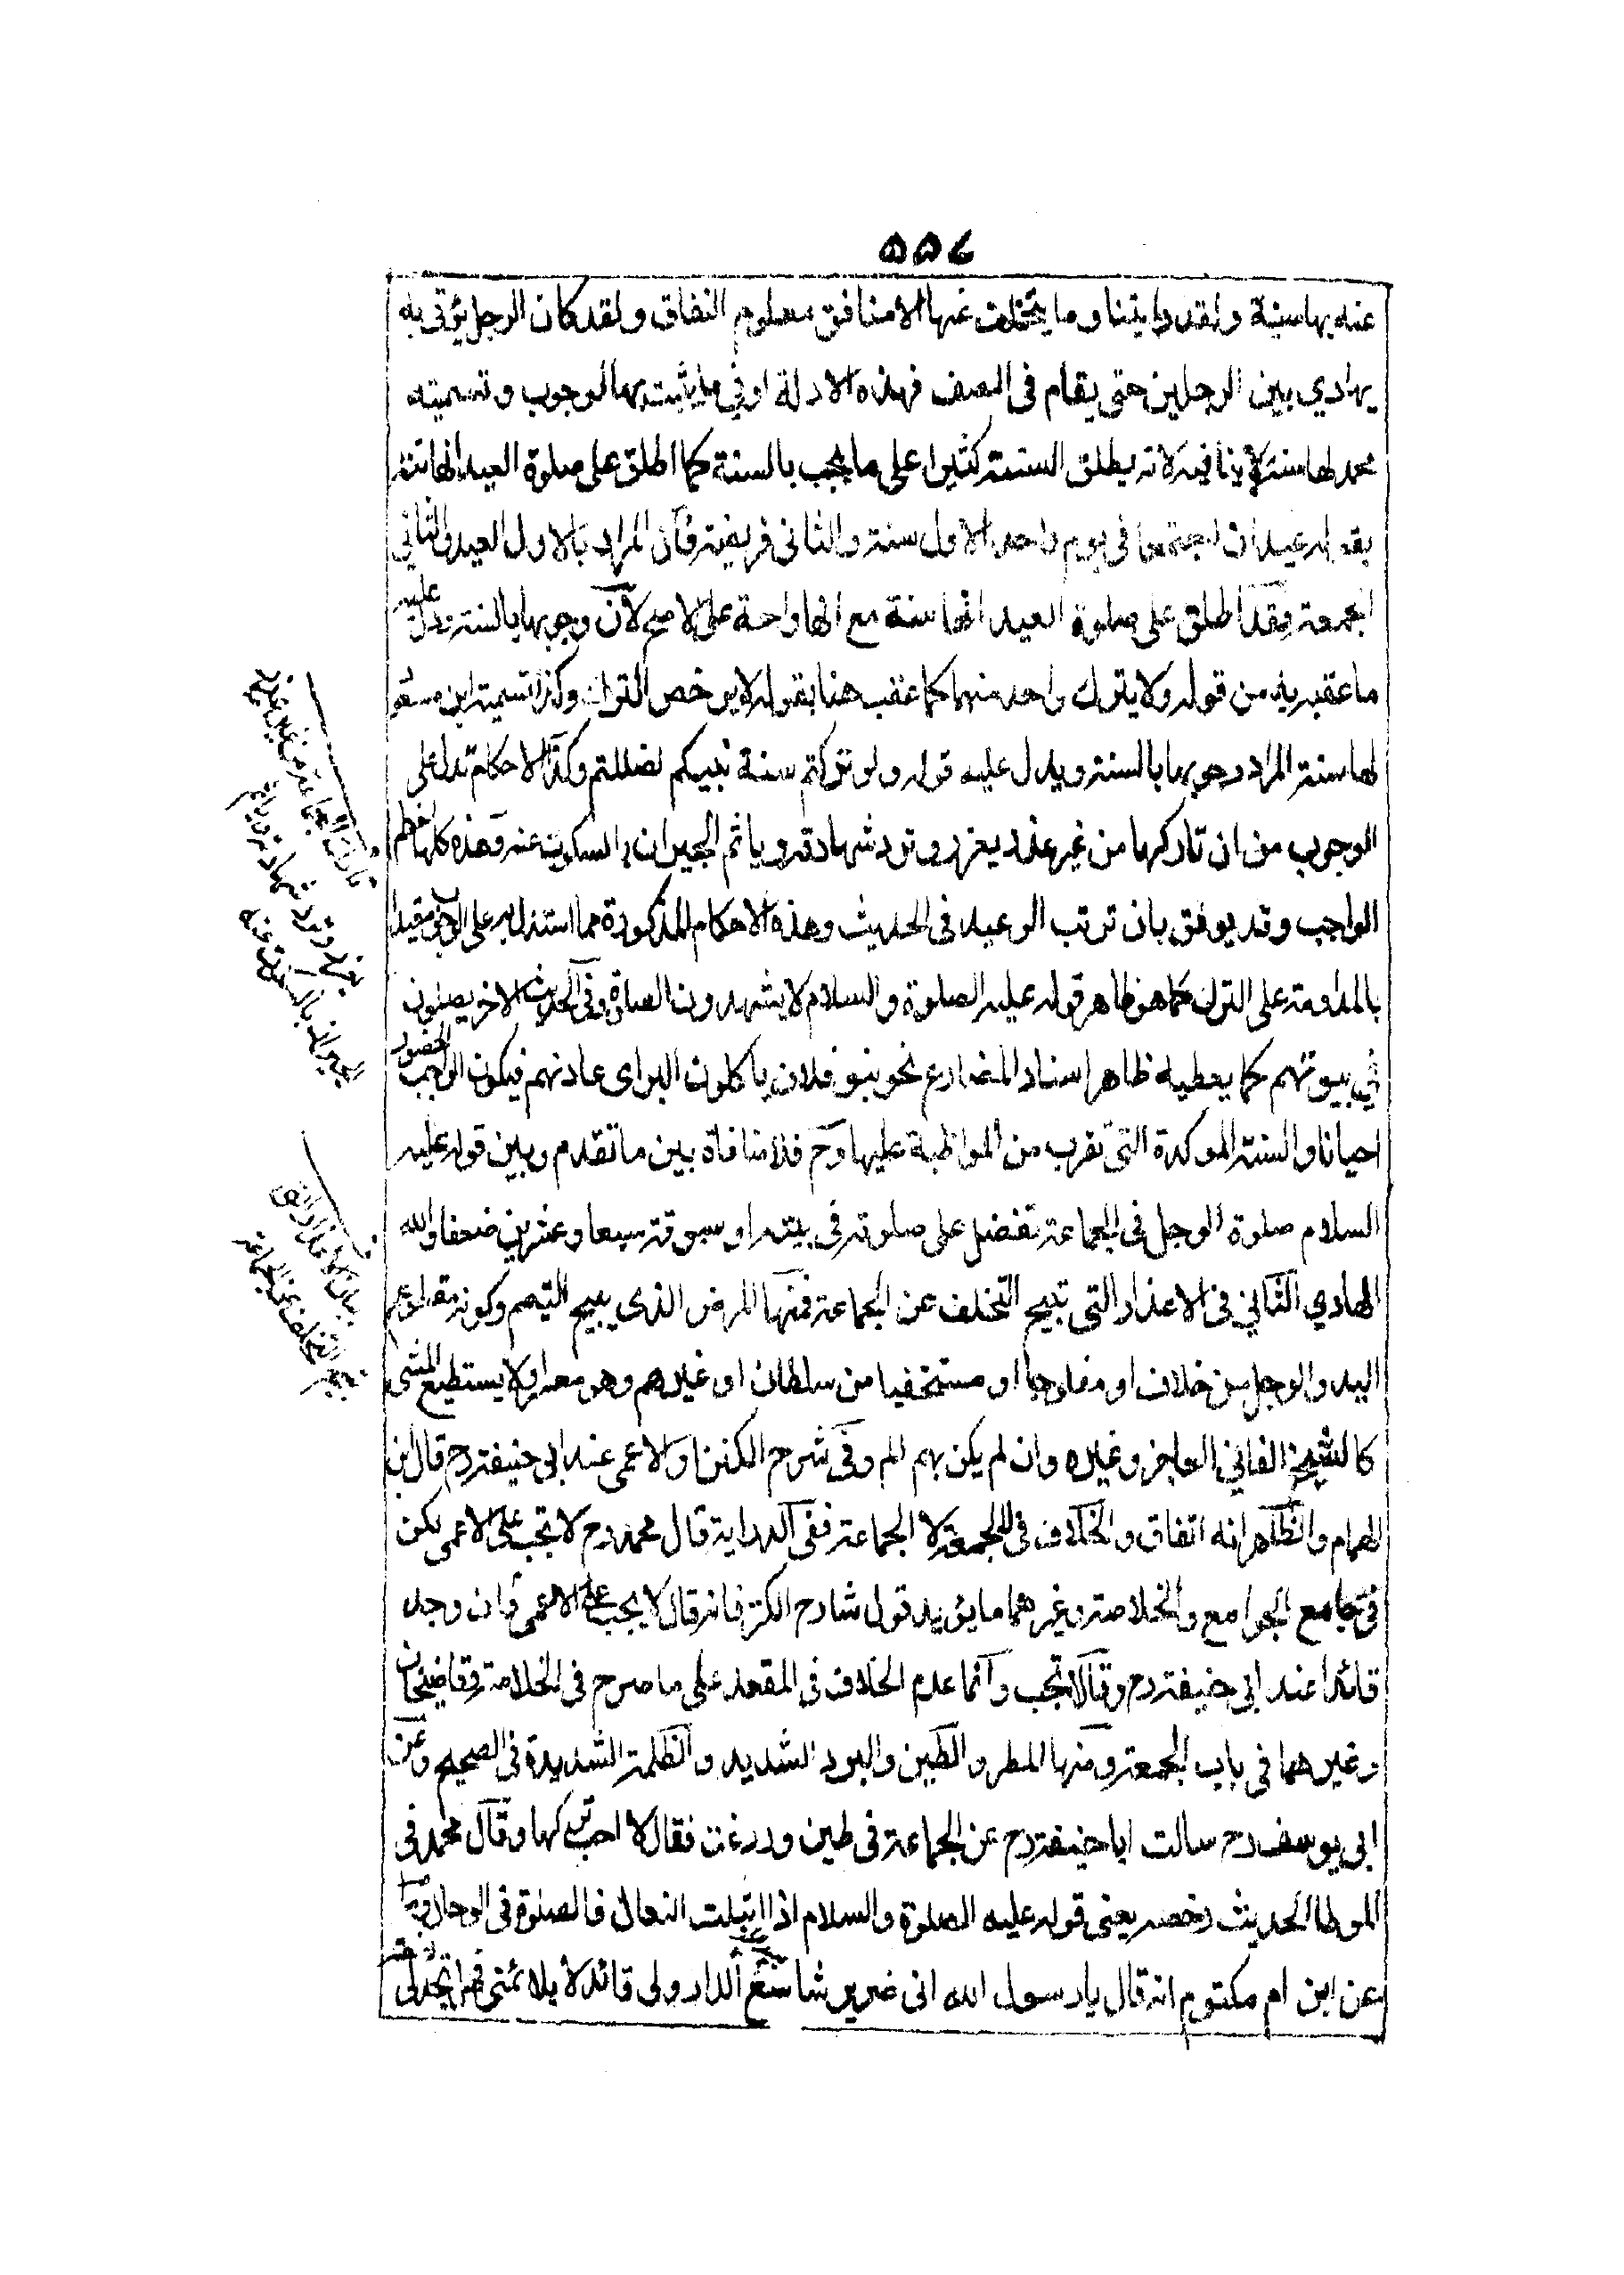 ۵۵۶
عنه بها سيئة ولقد رايتنا وما يتخلف عنها الا منافق معلوم النفاق ولقد كان الرجل يؤتى به
يهادي بين الرجلين حتى يقام فى الصف فهذه الادلة او في ما يثبت بها الوجوب وتسميته
محمد لها سنة لا ينافيه لانه يطلق السنة كثيرا على ما يجب بالسنة كما اطلق على صلوة العيد انها سنة
بقوله عيدان اجتمعا في يوم واحد الاول سنة والثانى فريضة فان المراد بالاول العيد والثاني
الجمعة فقد اطلق على صلوة العيد انها سنة مع انها واجبة على الاصح لان وجوبها بالسنة ودل عليه
ما عقبه به من قوله ولا يترك واحد منهما كما عقب هنا بقوله لا يرخص الترك وكذا تسمية ابن مسعود
لها سنة المراد وجوبها بالسنة ويدل عليه قوله ولو تركتم سنة نبيكم لضللتم وكذا الاحكام تدل على
الوجوب من ان تاركها من غير عذر يعزر وترد شهادته وياثم الجيران بالسكوت عنه وهذه كلها احكام
الواجب وقد يوفق بان ترتب الوعيد فى الحديث وهذه الاحكام المذكورة مما استدل به على الوجوب مقيد
بالمداومة على الترك كما هو ظاهر قوله عليه الصلوة والسلام لا يشهدون الصلوة وفى الحديث الاخر يصلون
في بيوتهم كما يعطيه ظاهر اسناد المضارع نحو بنو فلان ياكلون البر اى عادتهم فيكون الواجب الحضور
احيانا والسنة الموكدة التى تقرب من المواظبة عليها وح فلا منافاة بين ما تقدم وبين قوله عليه
السلام صلوة الرجل فى الجماعة تفضل على صلوته فى بيته او سوقه سبعا وعشرين ضعفا والله
الهادي الثاني فى الاعذار التى تبيح التخلف عن الجماعة فمنها المرض الذى يبيح التيمم وكونه مقطوع
اليد والرجل من خلاف او مفلوجا او مستخفيا من سلطان او غيرهم وهو معسر او لا يستطيع المشى
كالشيخ الفاني العاجز وغيره وان لم يكن بهم الم وفى شرح الكنز والاعمى عند ابى حنيفة رح قال ابن
الهمام والظاهر انه اتفاق والخلاف فى الجمعة لا الجماعة ففى الدراية قال محمد رح لا تجب على الاعمى لكن
فى جامع الجوامع والخلاصة وغيرهما ما يؤيد قول شارح الكنز فانه قال لا يجب على الاعمى وان وجد
قائدا عند ابى حنيفة رح وقالا تجب وانما عدم الخلاف فى المقعد على ما صرح فى الخلاصة وقاضيخان
وغيرهما فى باب الجمعة ومنها المطر والطين والبرد الشديد والظلمة الشديدة فى الصحيح وعن
ابى يوسف رح سالت ابا حنيفة رح عن الجماعة فى طين وردغة فقال لا احب تركها وقال محمد فى
الموطا الحديث رخصه يعنى قوله عليه الصلوة والسلام اذا ابتلت النعال فالصلوة فى الرحال
عن ابن ام مكتوم انه قال يا رسول الله انى ضرير شاسع الدار ولى قائد لا يلائمنى فهل تجد لى
تارك الجماعة من غير عذر
يعزر وترد شهادته وياثم
الجيران بالسكوت عنه
بيان الاعذار التى
تبيح التخلف عن الجماعة